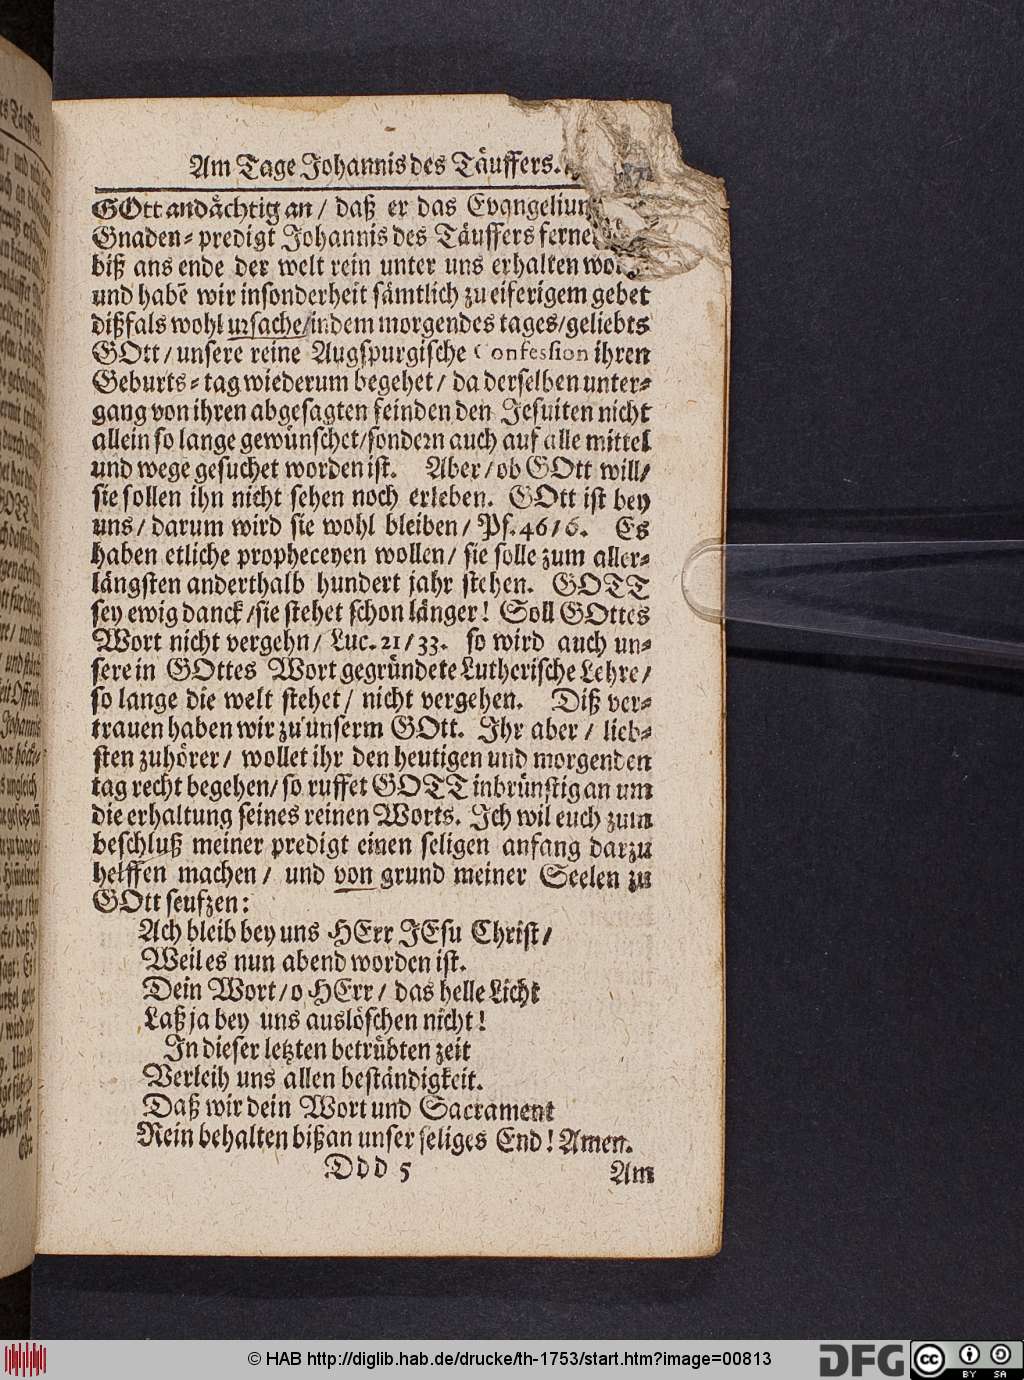 Am Tage Johannis des Täuffers.
GOtt andächtig an / daß er das Evangelium
Gnaden-predigt Johannis des Täuffers ferne
biß ans ende der welt rein unter uns erhalten
und habẽ wir insonderheit sämtlich zu eiferigem gebet
dißfals wohl ursache/indem morgendes tages/geliebts
GOtt / unsere reine Augspurgische Confession ihren
Geburts-tag wiederum begehet / da derselben unter-
gang von ihren abgesagten feinden den Jesuiten nicht
allein so lange gewünschet/sondern auch auf alle mittel
und wege gesuchet worden ist. Aber / ob GOtt will/
sie sollen ihn nicht sehen noch erleben. GOtt ist bey
uns / darum wird sie wohl bleiben / Ps. 46/6. Es
haben etliche propheceyen wollen / sie solle zum aller-
längsten anderthalb hundert jahr stehen. GOTT
sey ewig danck /sie stehet schon länger! Soll GOttes
Wort nicht vergehn / Luc. 21/33. so wird auch un-
sere in GOttes Wort gegründete Lutherische Lehre /
so lange die welt stehet / nicht vergehen. Diß ver-
trauen haben wir zu unserm GOtt. Ihr aber / lieb-
sten zuhörer / wollet ihr den heutigen und morgenden
tag recht begehen/ so ruffet GOTT inbrünstig an um
die erhaltung seines reinen Worts. Ich wil euch zum
beschluß meiner predigt einen seligen anfang darzu
helffen machen / und von grund meiner Seelen zu
GOtt seufzen:
Ach bleib bey uns HErr JEsu Christ /
Weil es nun abend worden ist.
Dein Wort / o HErr / das helle Licht
Laß ja bey uns auslöschen nicht!
In dieser letzten betrübten zeit
Verleih uns allen beständigkeit.
Daß wir dein Wort und Sacrament
Rein behalten biß an unser seliges End! Amen.
Ddd 5 Am
© HAB http://diglib.hab.de/drucke/th-1753/start.htm?image=00813
DFG
cc BY SA